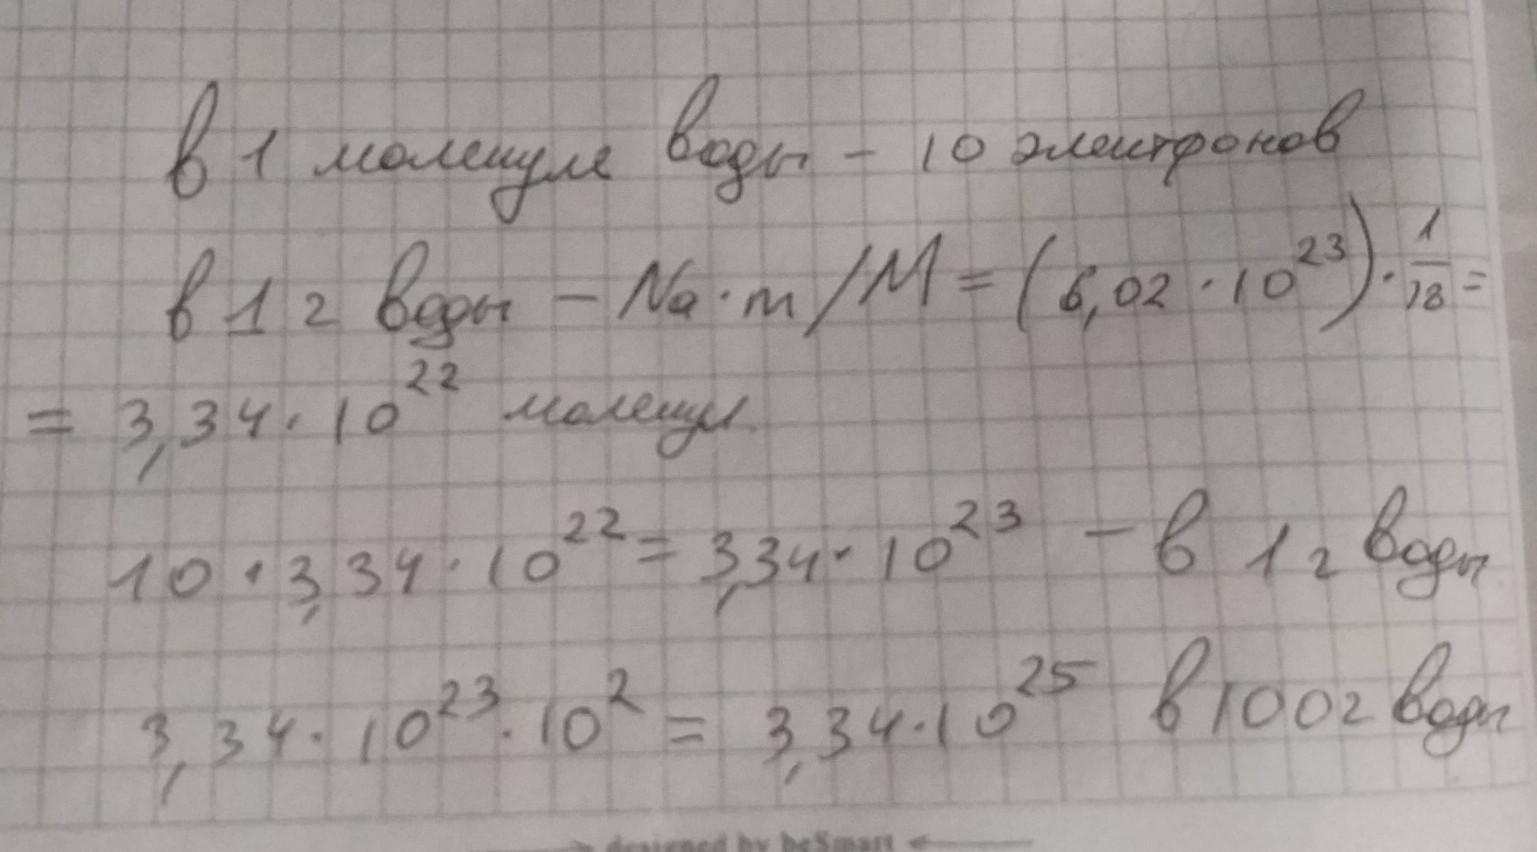 в 1 молекуле воды – 10 электронов
в 1 г воды – Na · m / M = (6,02 · 10²³) · 1/18 =
= 3,34 · 10²² молекул
10 · 3,34 · 10²² = 3,34 · 10²³ – в 1 г воды
3,34 · 10²³ · 10² = 3,34 · 10²⁵ в 100 г воды
designed by beSmart